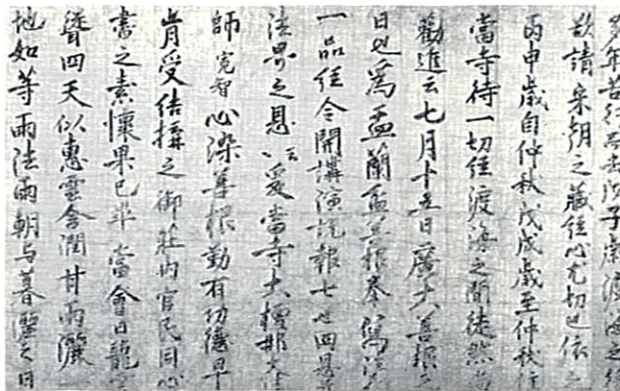 多年苦行
欲請宋朝之蔵経心尤切也依
丙申歳自仲秋戊戌歳至仲秋
當寺待一切経渡海之間徒然
勸進云七月十五日廣大善根
日也為盂蘭盆善根奉寫
一品経令開講演説報七世四恩
法界之恩云云爰當寺大檀那
師寛智心染善根勤有功徳早
肯受結構之御莊内官民同心
書之素懐果已畢當會日龍
聳四天似惠雲含潤甘雨灑
地如等雨法雨朝与暮灑